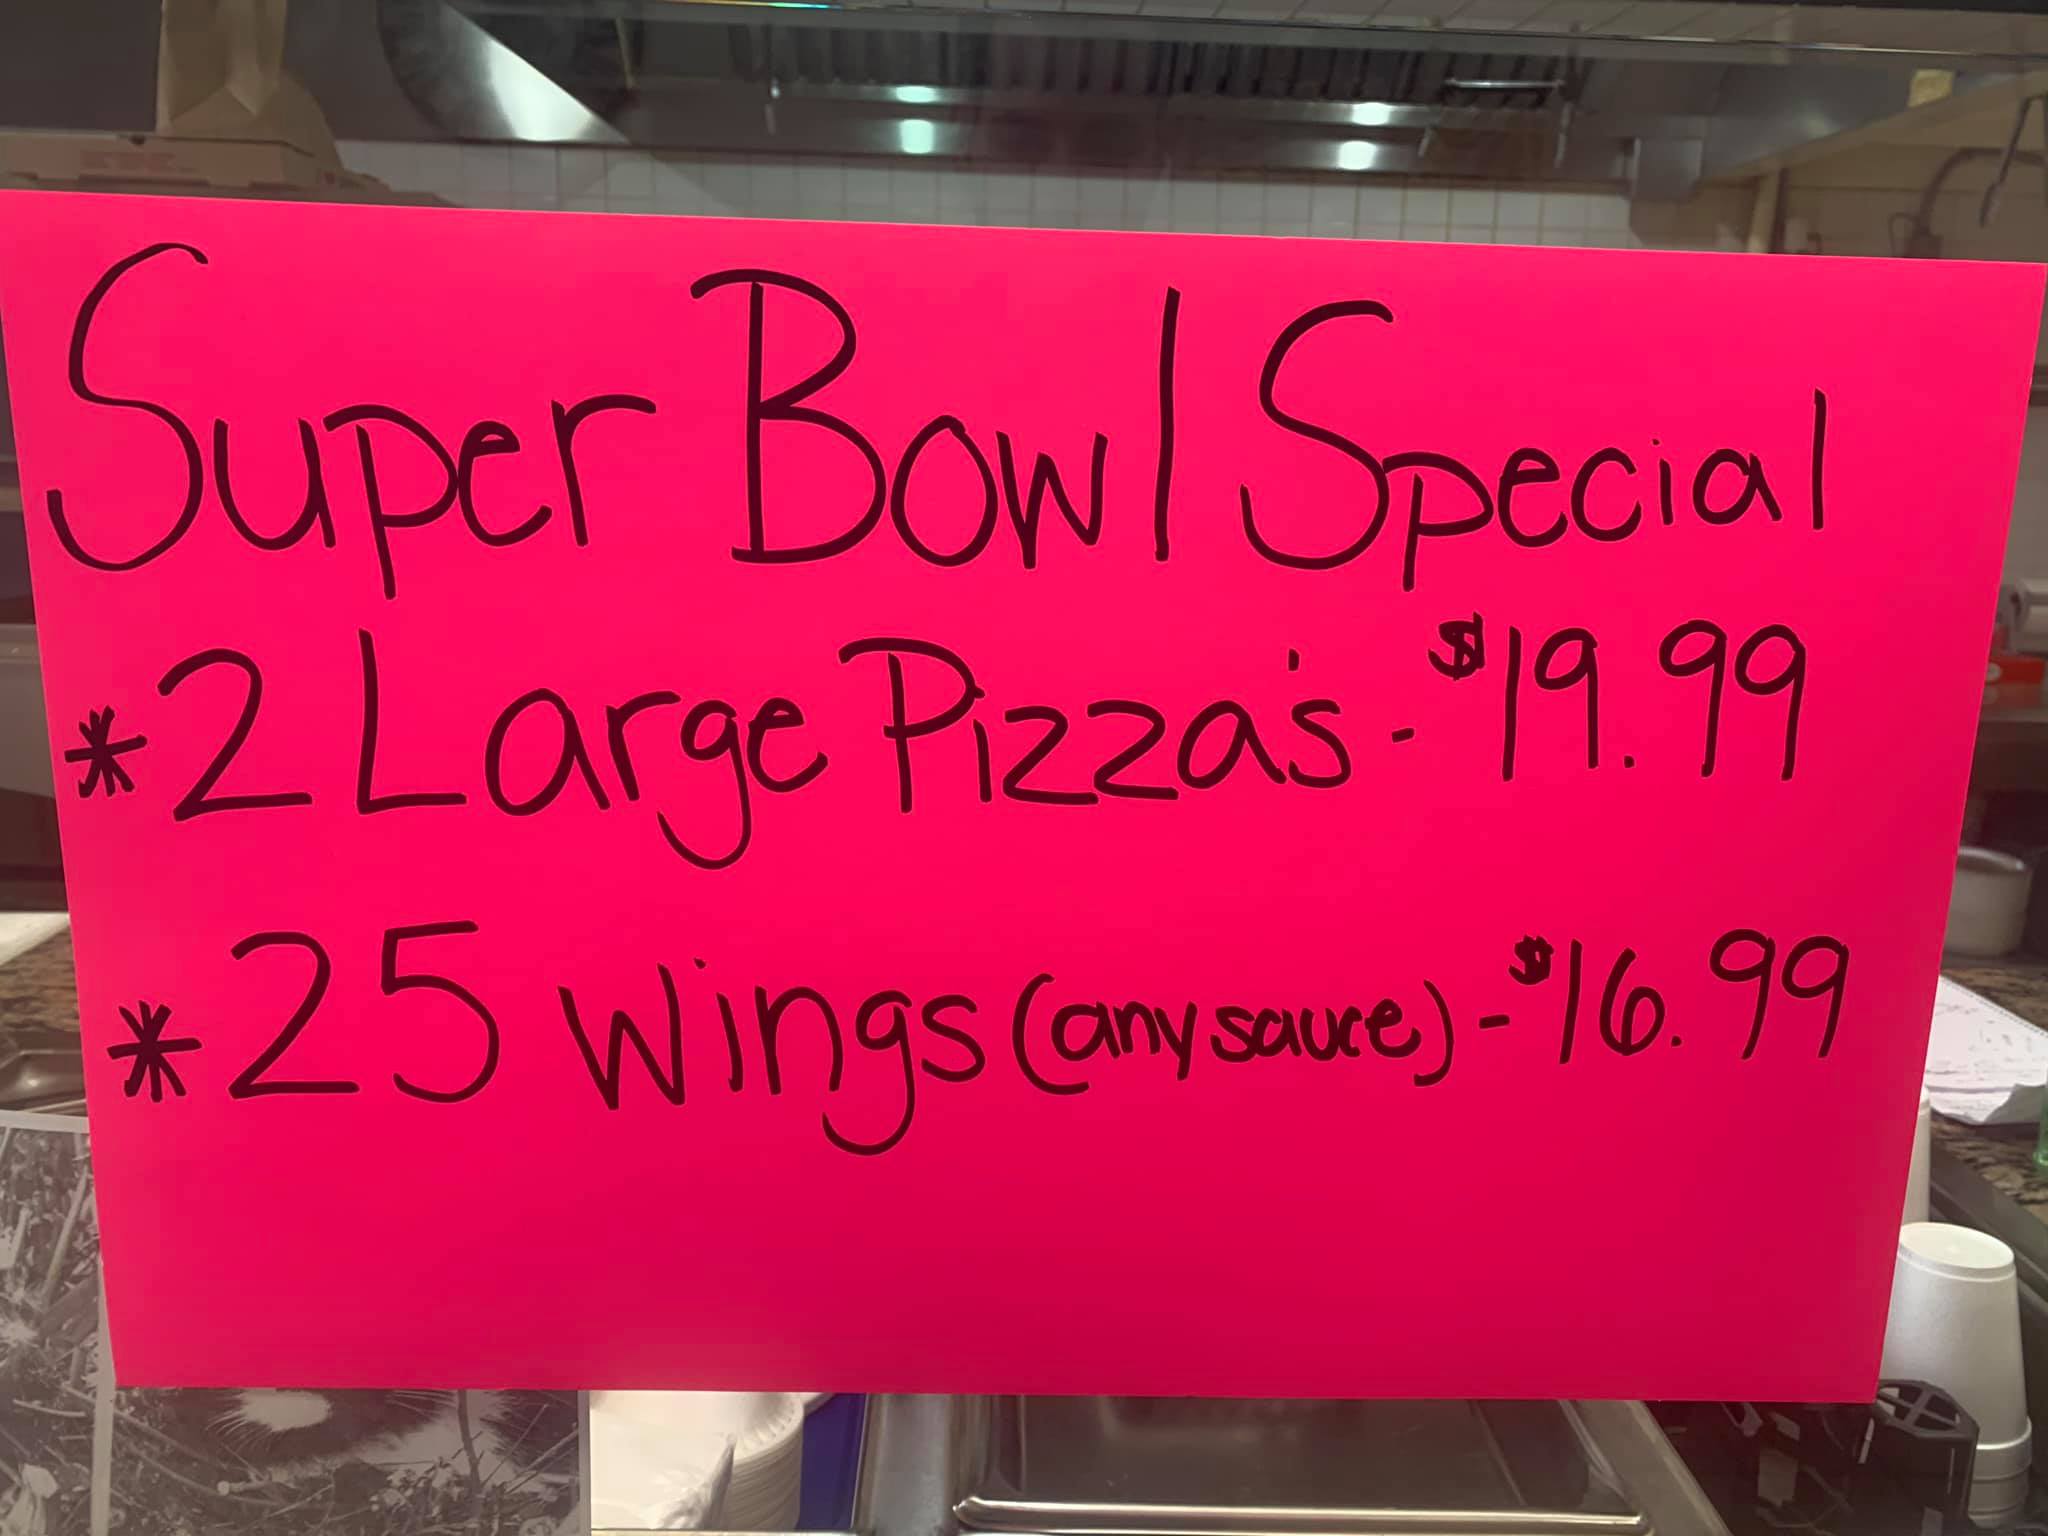 Super Bowl Special
*2 Large Pizza's - $19.99
*25 Wings (any sauce) - $16.99